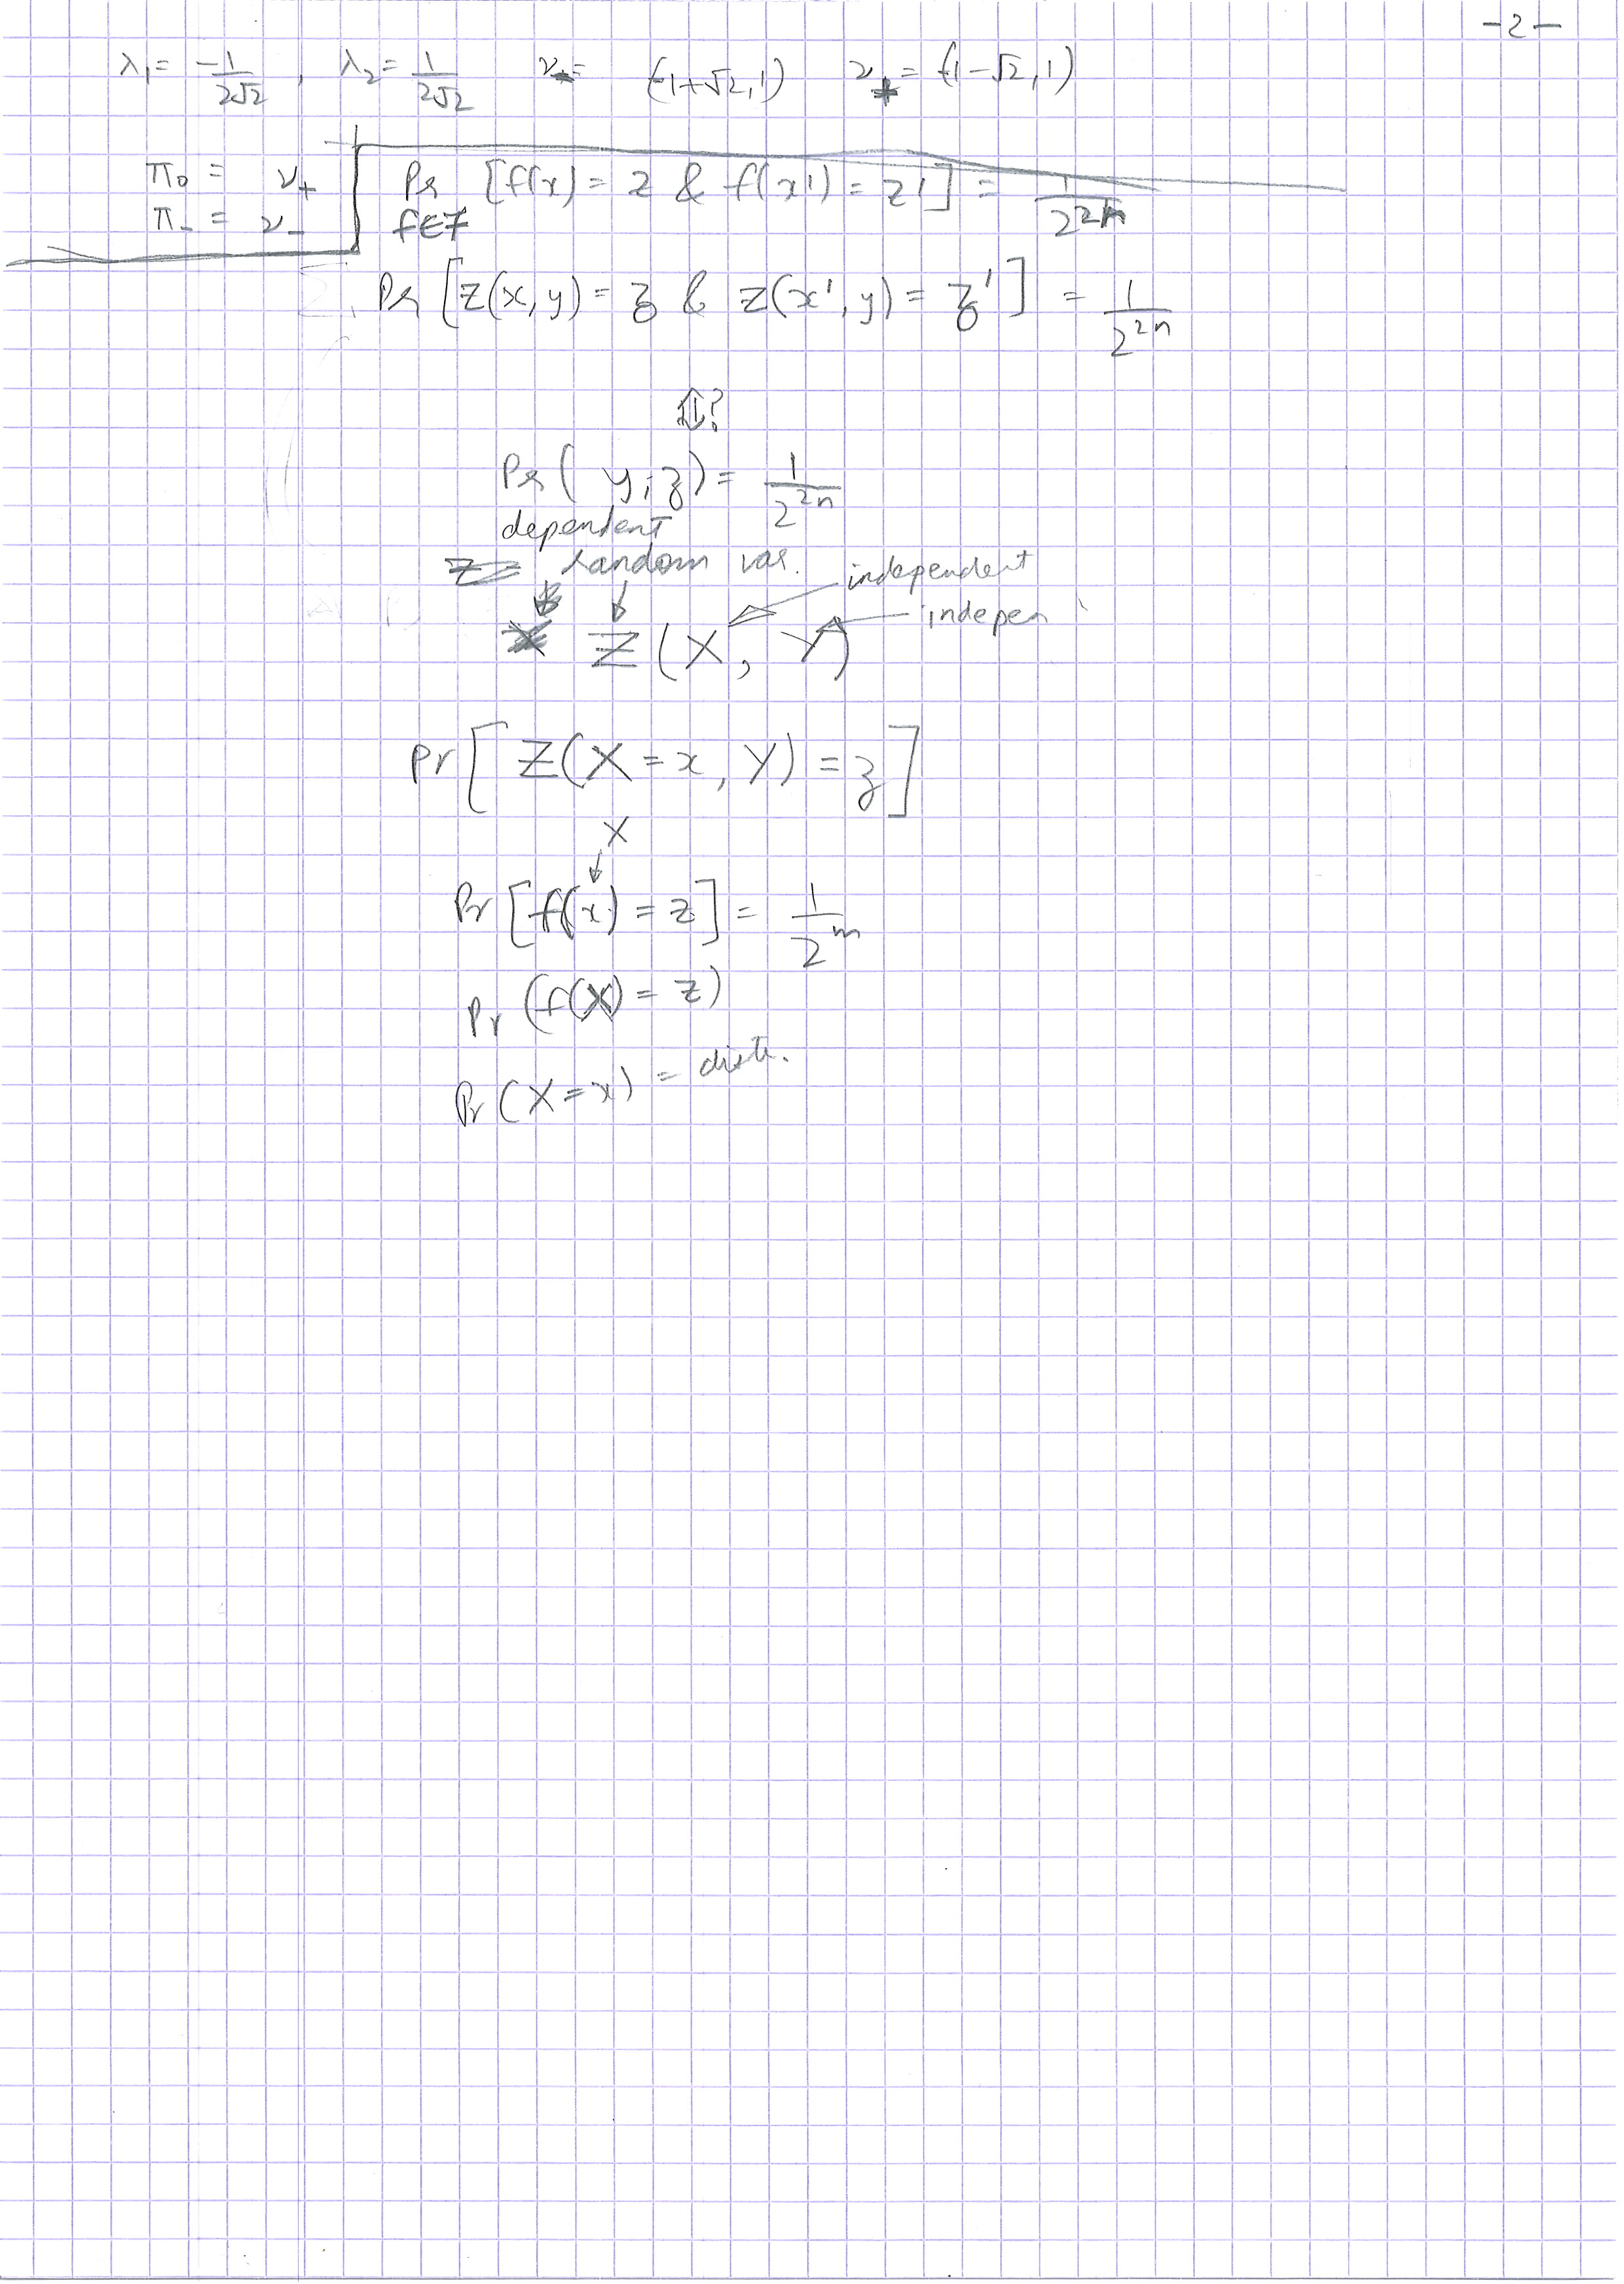 -2-
λ₁ = -1/2√2 , λ₂ = 1/2√2 ν₋ = (1+√2, 1) ν₊ = (1-√2, 1)
π₀ = ν₊
π₋ = ν₋
Pr [f(x) = z & f(x') = z'] = 1/2^2n
f∈F
Pr [Z(x, y) = z & Z(x', y) = z'] = 1/2^2n
⇕?
Pr( y, z) = 1/2^2n
dependent
random var. independent
indepen
Z (X, Y)
Pr[ Z(X = x, Y) = z ]
X
↓
Pr [f(x) = z] = 1/2^m
Pr (f(X) = z)
Pr (X = x) = distr.